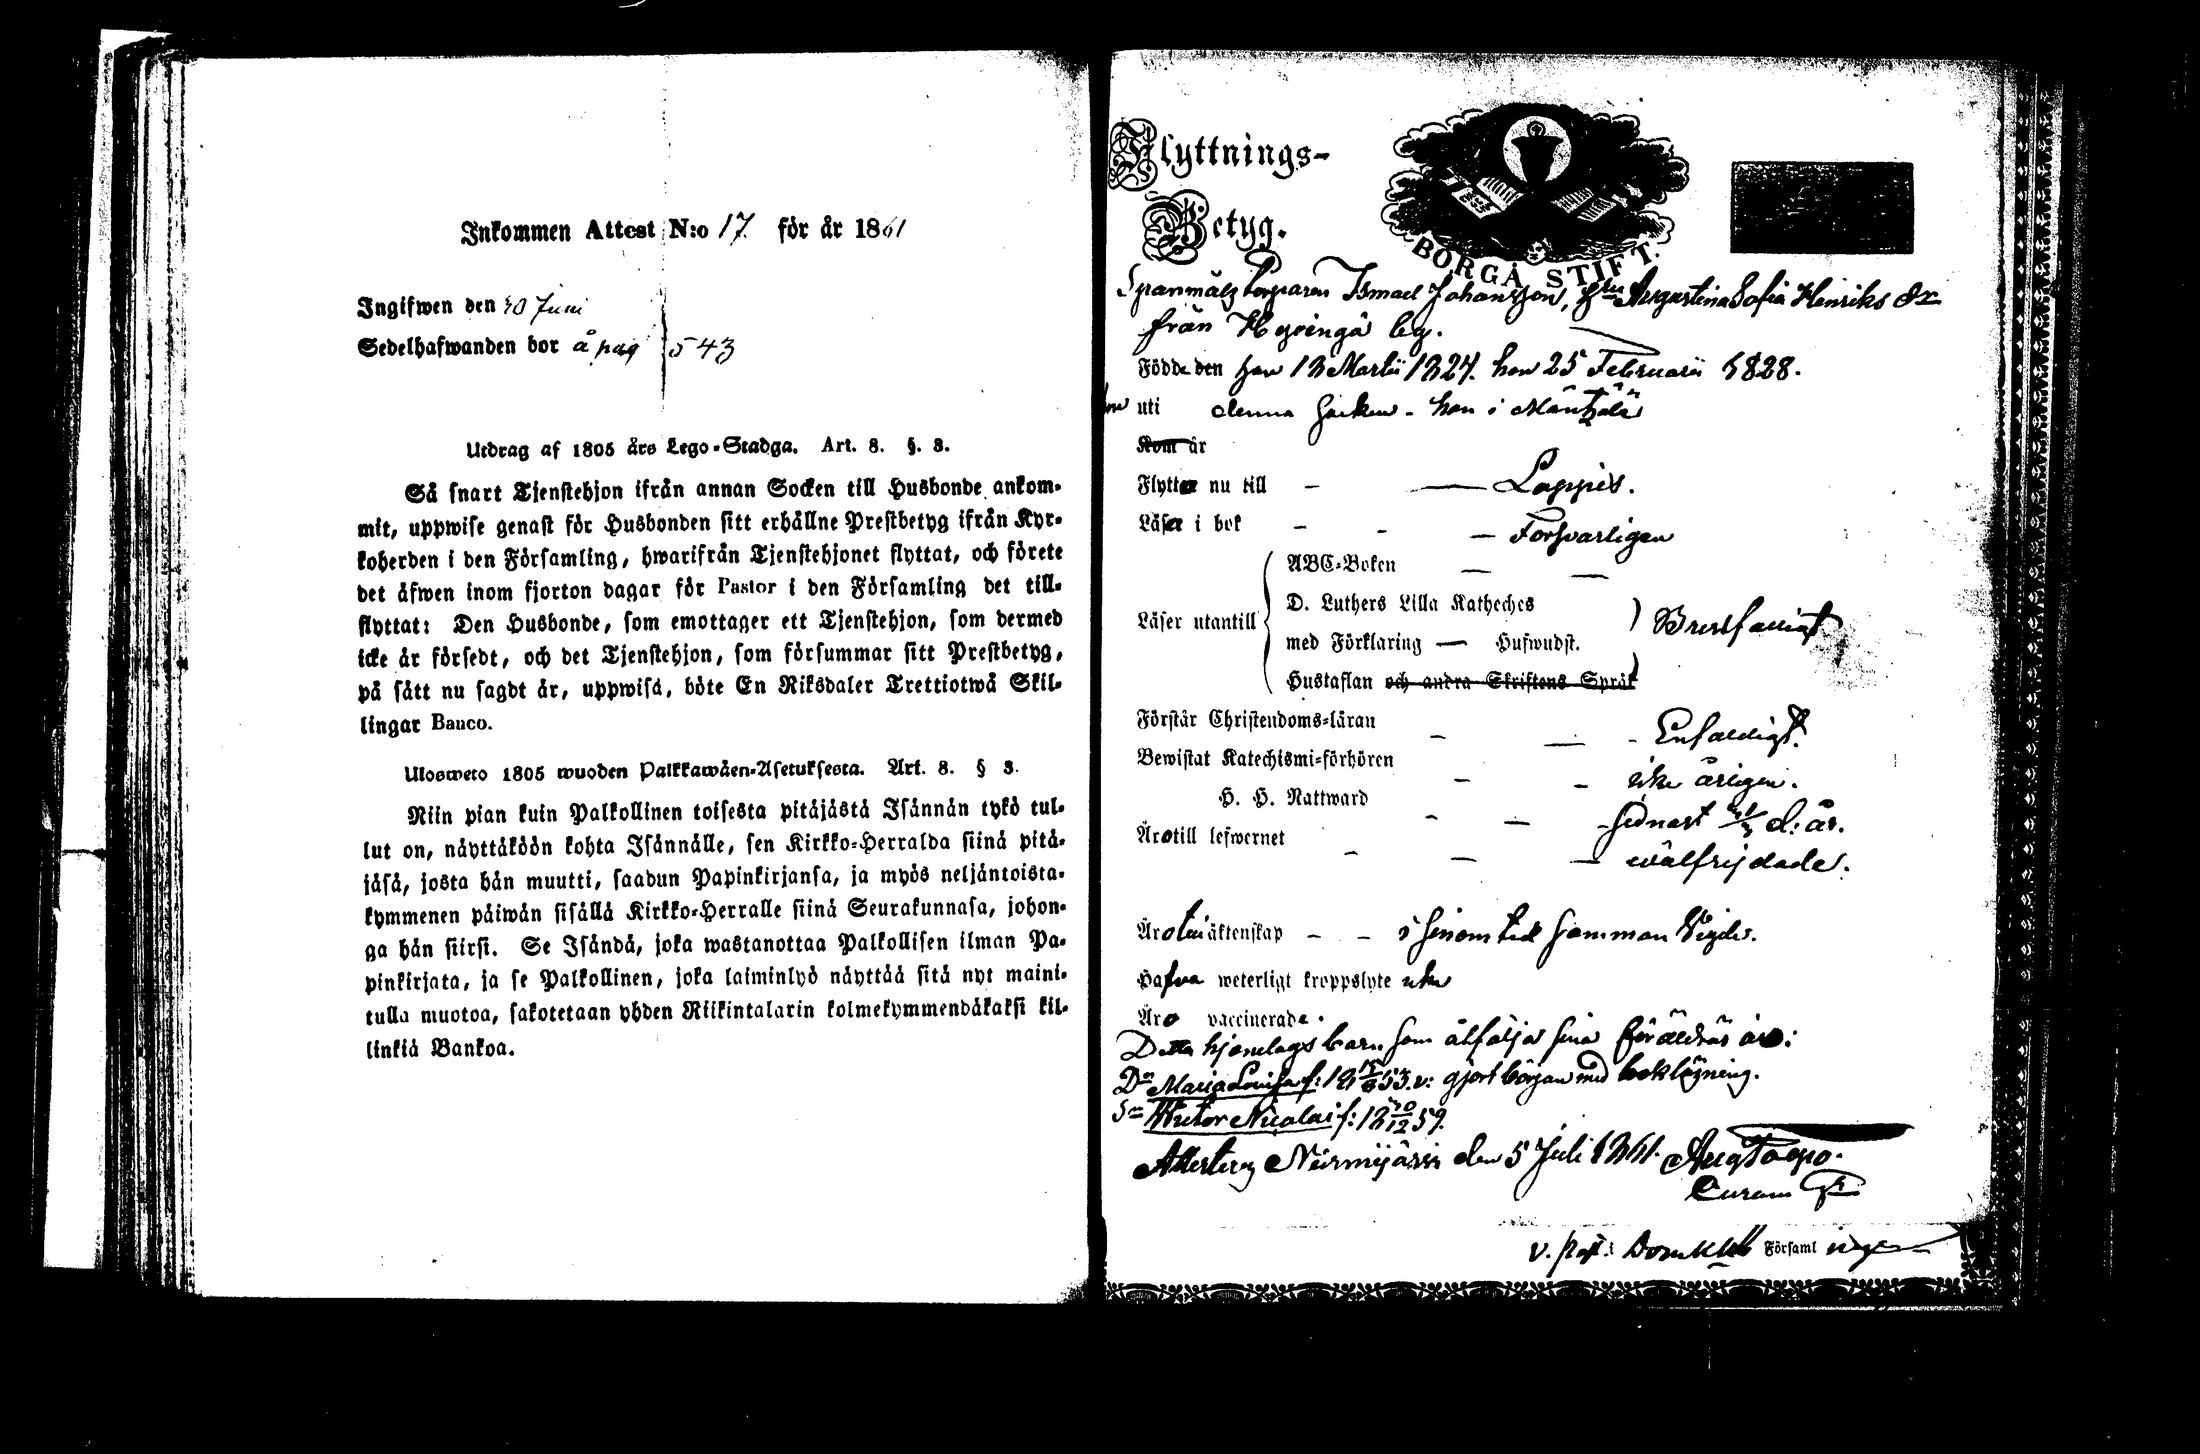 Inkommen Attest N:o 17. för år 1861
Ingifwen den 30 Juni
Sedelhafwanden bor å pag 543
Utdrag af 1805 års Lego-Stadga. Art. 8. §. 3.
Så snart Tjenstehjon ifrån annan Socken till Husbonde ankom-
mit, uppwise genast för Husbonden sitt erhållne Prestbetyg ifrån Kyr-
koherden i den Församling, hwarifrån Tjenstehjonet flyttat, och förete
det äfwen inom fjorton dagar för Pastor i den Församling det till-
flyttat: Den Husbonde, som emottager ett Tjenstehjon, som dermed
icke är försedt, och det Tjenstehjon, som försummar sitt Prestbetyg,
på sätt nu sagdt är, uppwisa, böte En Riksdaler Trettiotwå Skil-
lingar Banco.
Ulosweto 1805 wuoden Palkkawäen-Asetuksesta. Art. 8. § 3.
Niin pian kuin Palkollinen toisesta pitäjästä Isännän tykö tul-
lut on, näyttäköön kohta Isännälle, sen Kirkko-Herralda siinä pitä-
jäsä, josta hän muutti, saadun Papinkirjansa, ja myös neljäntoista-
kymmenen päiwän sisällä Kirkko-Herralle siinä Seurakunnasa, johon-
ga hän siirsi. Se Isändä, joka wastanottaa Palkollisen ilman Pa-
pinkirjata, ja se Palkollinen, joka laiminlyö näyttää sitä nyt maini-
tulla muotoa, sakotetaan yhden Riikintalarin kolmekymmendäkaksi kil-
linkiä Bankoa.
Flyttnings-
Betyg.
BORGÅ STIFT.
Spanmåls Torparen Ismael Johansson, Hstu Augustina Sofia Henriks dr
från Hyvingå by.
Födde den han 13 Martii 1827. hon 25 Februarii 1828.
uti denna Socken - hon i Mäntzälä
Kom år
Flytta nu till - Loppis.
Läsa i bok - - - Försvarligen
ABC-Boken
D. Luthers Lilla Kateches
Läser utantill
med Förklaring — Hufwudst.
Hustaflan och andra Skriftens Språk
Bristfälligt
Förstår Christendoms-läran - - - Enfaldigt.
Bewistat Katechismi-förhören - - icke årligen.
H. H. Nattward - - - sednast d: år.
Äro till lefwernet - - - wälfrejdade.
Äro till äktenskap - - sinom tid samman Vigde.
Hafva weterligt kroppslyte icke
Äro vaccinerade.
Detta hjonelags barn som åtfölja sina föräldrar äro:
Dr Maria Lovisa f: gjort början med boklesning.
Sn Wictor Nicolai f: 18 30/12 59.
Attesterar Nurmijärvi den 5 Juli 1861.
v. past. i Församl